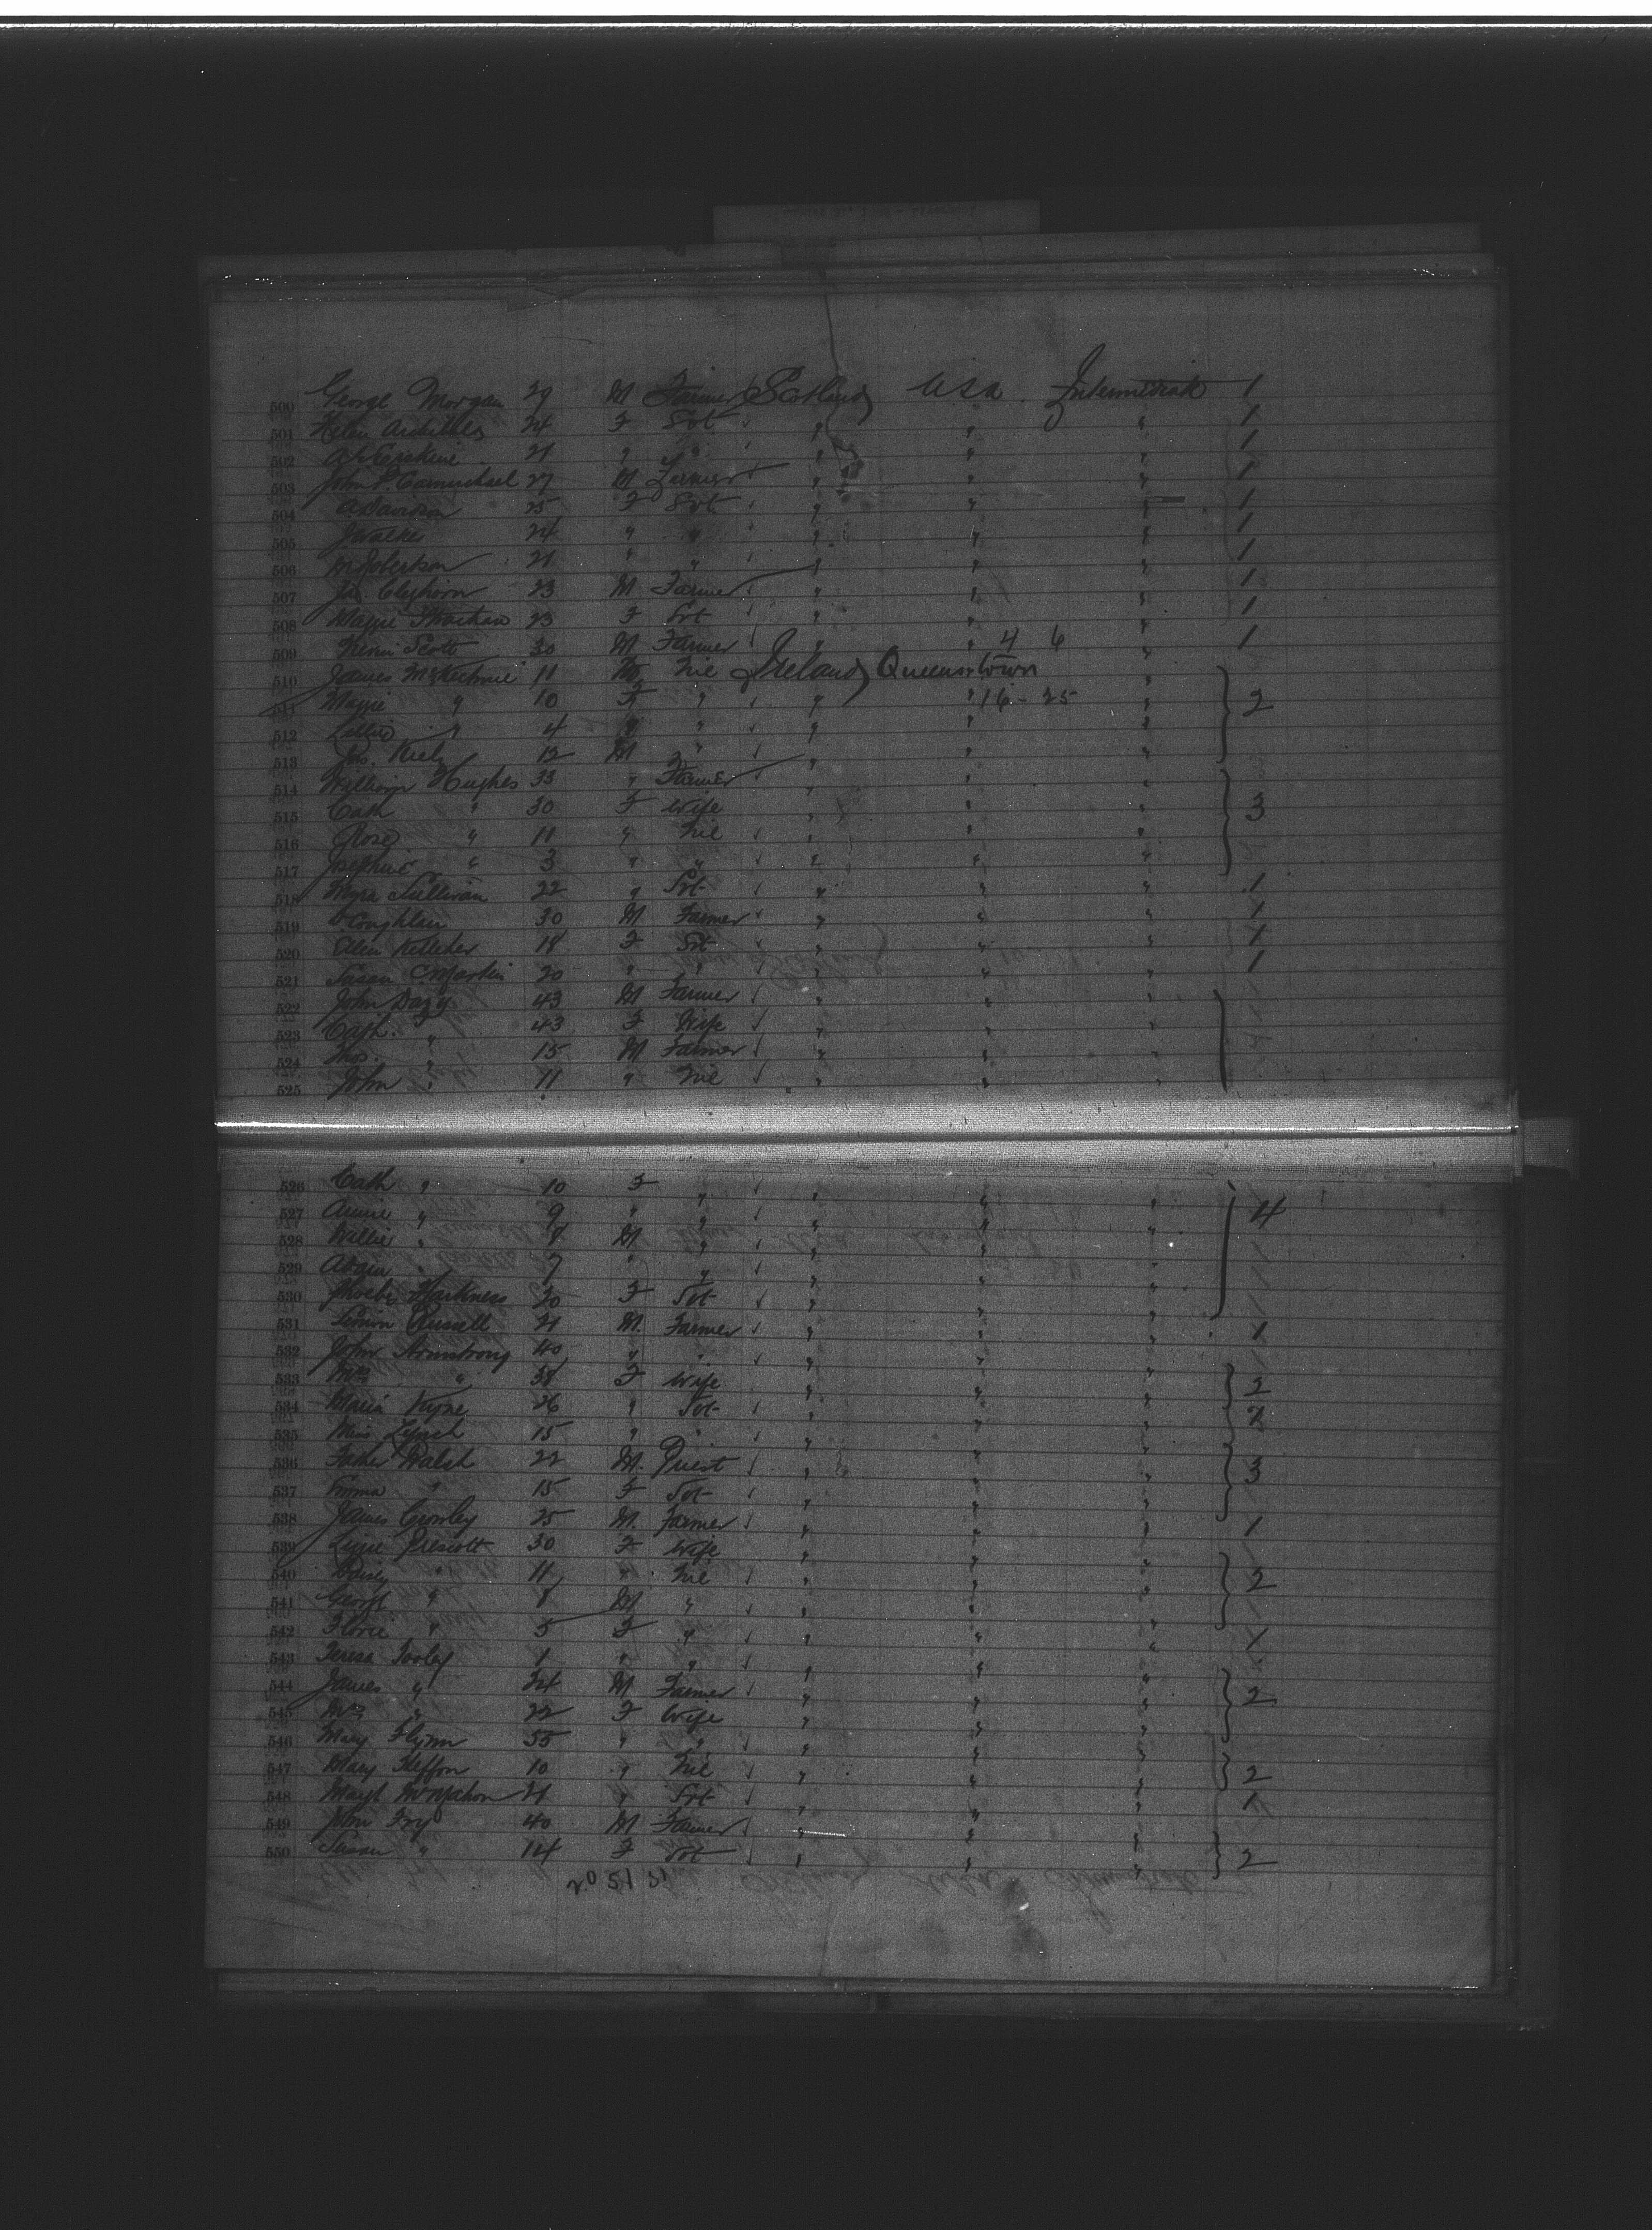 500 George Morgan 29 M Farmer Scotland USA Intermediate 1
501 Helen 24 F Svt " " " 1
502 Erskine 21 " " " " " 1
503 John P Carmichael 27 M Farmer " " " 1
504 A Davidson 25 F Svt " " " 1
505 J Walker 24 " " " " " 1
506 M Robertson 21 " " " " " 1
507 Jas. Cleghorn 23 M Farmer " " " 1
508 Maggie Strachan 23 F Svt " " " 1
509 Scott 30 M Farmer " " 4 6 " 1
510 James McKechnie 11 M Nil Ireland Queenstown "
511 Maggie " 10 F " " " 16-25 " 2
512 Lillie " 4 " " " " "
513 Jas. Kiely 12 M " " " "
514 William Hughes 33 " Farmer " " "
515 Cath " 30 F Wife " " " 3
516 Rose " 11 " Nil " " "
517 Josephine " 3 " " " " "
518 Myra Sullivan 22 " Svt " " " 1
519 D Coughlan 30 M Farmer " " " 1
520 Ellen Kelleher 18 F Svt " " " 1
521 Susan Martin 20 " " " " " 1
522 John 43 M Farmer " " "
523 Cath. " 43 F Wife " " "
524 Thos. " 15 M Farmer " " "
525 John " 11 " Nil " " "
526 Cath " 10 F " " " "
527 Annie " 9 " " " " " 4
528 Willie " 8 M " " " "
529 Adam " 7 " " " " "
530 Phoebe Harkness 20 F Svt " " "
531 Simon Russell 21 M. Farmer " " " 1
532 John Armstrong 40 " " " " "
533 Mrs " 38 F Wife " " " 2
534 Maria Kyne 26 " Svt " " " 2
535 Miss Lynch 15 " " " " "
536 Father Walsh 22 M. Priest " " " 3
537 Emma " 15 F Svt " " "
538 James Crowley 25 M. Farmer " " " 1
539 Lizzie Prescott 30 F Wife " " "
540 Daisy " 11 " Nil " " " 2
541 George " 8 M " " " "
542 Florie " 5 F " " " " 1
543 Teresa Tooley 1 " " " " "
544 James " 24 M Farmer " " " 2
545 Mrs " 22 F Wife " " "
546 Mary Flynn 55 " " " " "
547 Mary Heffron 10 " Nil " " " 2
548 Margt McMahon 21 " Svt " " " 1
549 John Fry 40 M Farmer " " "
550 Susan " 14 F Svt " " " 2
20 21 31